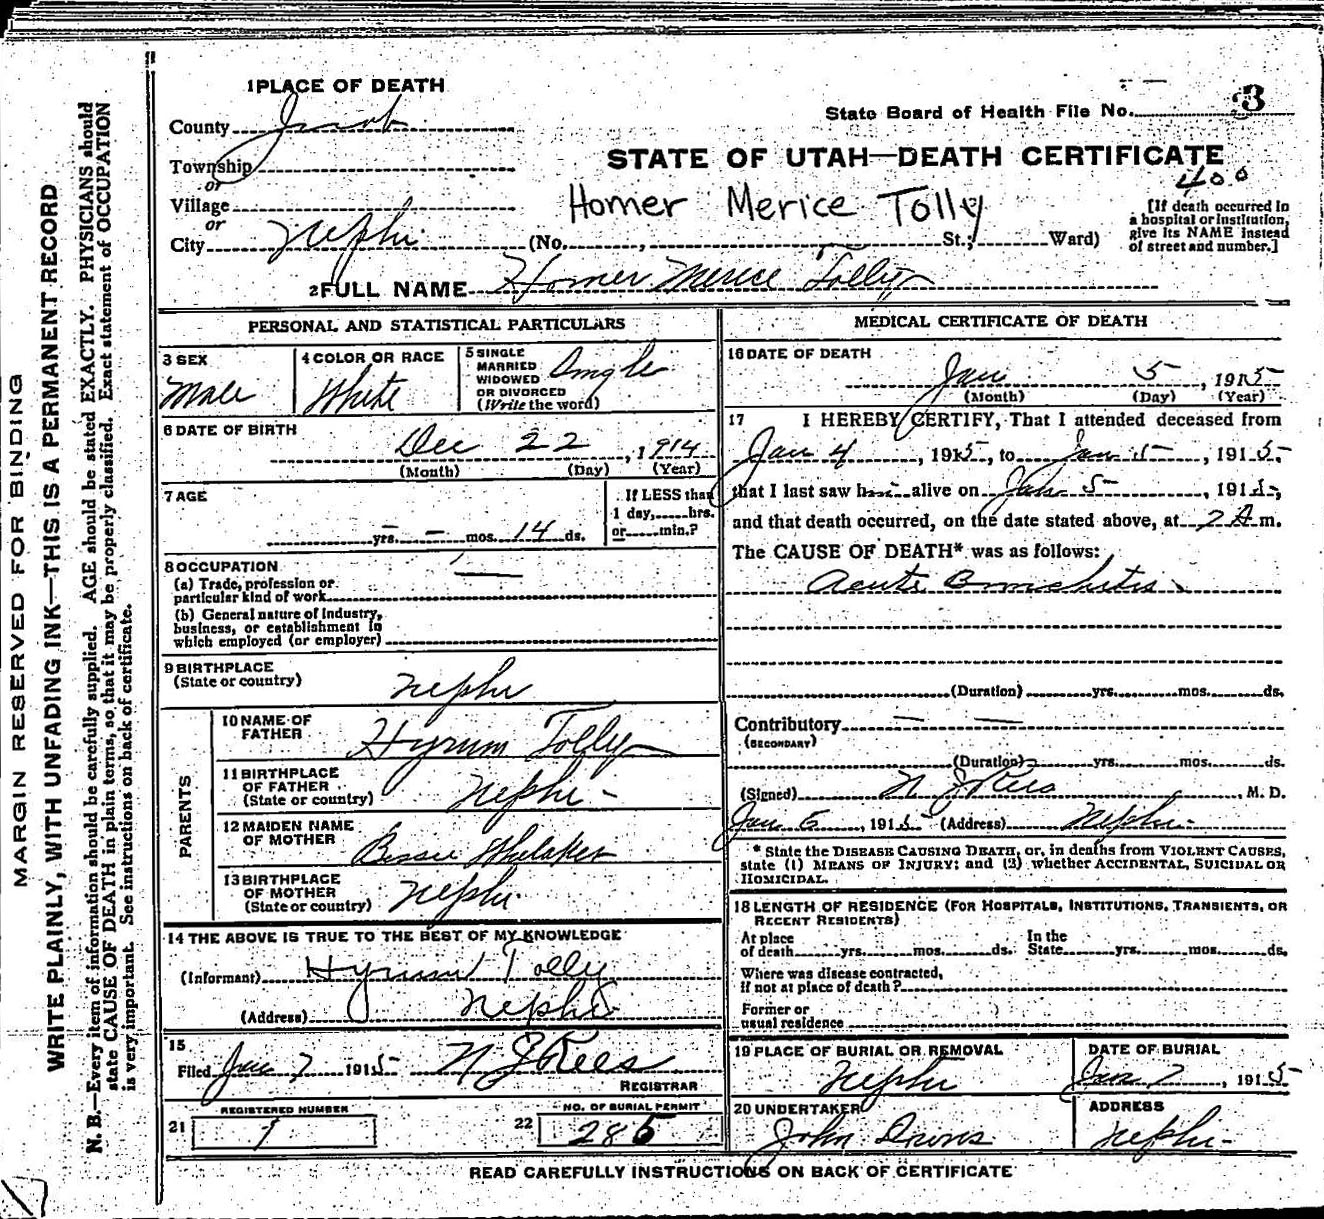 MARGIN RESERVED FOR BINDING
WRITE PLAINLY, WITH UNFADING INK—THIS IS A PERMANENT RECORD
N. B.—Every item of information should be carefully supplied. AGE should be stated EXACTLY. PHYSICIANS should
state CAUSE OF DEATH in plain terms, so that it may be properly classified. Exact statement of OCCUPATION
is very important. See instructions on back of certificate.
1 PLACE OF DEATH
County Juab
Township
or
Village
or
City Nephi (No. , St.; Ward)
State Board of Health File No. 3
STATE OF UTAH—DEATH CERTIFICATE
400
Homer Merice Tolly
[If death occurred in
a hospital or institution,
give its NAME instead
of street and number.]
2 FULL NAME Homer Merice Tolly
PERSONAL AND STATISTICAL PARTICULARS
3 SEX
Male
4 COLOR OR RACE
White
5 SINGLE
MARRIED
WIDOWED
OR DIVORCED
(Write the word)
Single
6 DATE OF BIRTH
Dec 22, 1914
(Month) (Day) (Year)
7 AGE
— yrs. — mos. 14 ds.
If LESS than
1 day, hrs.
or min.?
8 OCCUPATION
(a) Trade, profession or
particular kind of work —
(b) General nature of industry,
business, or establishment in
which employed (or employer)
9 BIRTHPLACE
(State or country)
Nephi
PARENTS
10 NAME OF
FATHER
Hyrum Tolly
11 BIRTHPLACE
OF FATHER
(State or country)
Nephi -
12 MAIDEN NAME
OF MOTHER
Bessie Whitaker
13 BIRTHPLACE
OF MOTHER
(State or country)
Nephi.
14 THE ABOVE IS TRUE TO THE BEST OF MY KNOWLEDGE
(Informant) Hyrum Tolly
(Address) Nephi
15
Filed Jan 7 1915 N J Rees
REGISTRAR
21 REGISTERED NUMBER
1
22 NO. OF BURIAL PERMIT
286
MEDICAL CERTIFICATE OF DEATH
16 DATE OF DEATH
Jan 5, 1915
(Month) (Day) (Year)
17 I HEREBY CERTIFY, That I attended deceased from
Jan 4, 1915, to Jan 5-, 1915-
that I last saw him alive on Jan 5-, 1915-,
and that death occurred, on the date stated above, at 2 A m.
The CAUSE OF DEATH* was as follows:
Acute Bronchitis
(Duration) yrs. mos. ds.
Contributory — —
(SECONDARY)
(Duration) yrs. mos. ds.
(Signed) N J Rees, M. D.
Jan 6, 1915 (Address) Nephi-
* State the DISEASE CAUSING DEATH, or, in deaths from VIOLENT CAUSES,
state (1) MEANS OF INJURY; and (2) whether ACCIDENTAL, SUICIDAL OR
HOMICIDAL.
18 LENGTH OF RESIDENCE (FOR HOSPITALS, INSTITUTIONS, TRANSIENTS, OR
RECENT RESIDENTS)
At place
of death yrs. mos. ds.
In the
State yrs. mos. ds.
Where was disease contracted,
if not at place of death?
Former or
usual residence
19 PLACE OF BURIAL OR REMOVAL
Nephi
DATE OF BURIAL
Jan 7, 1915
20 UNDERTAKER
John
ADDRESS
Nephi-
READ CAREFULLY INSTRUCTIONS ON BACK OF CERTIFICATE